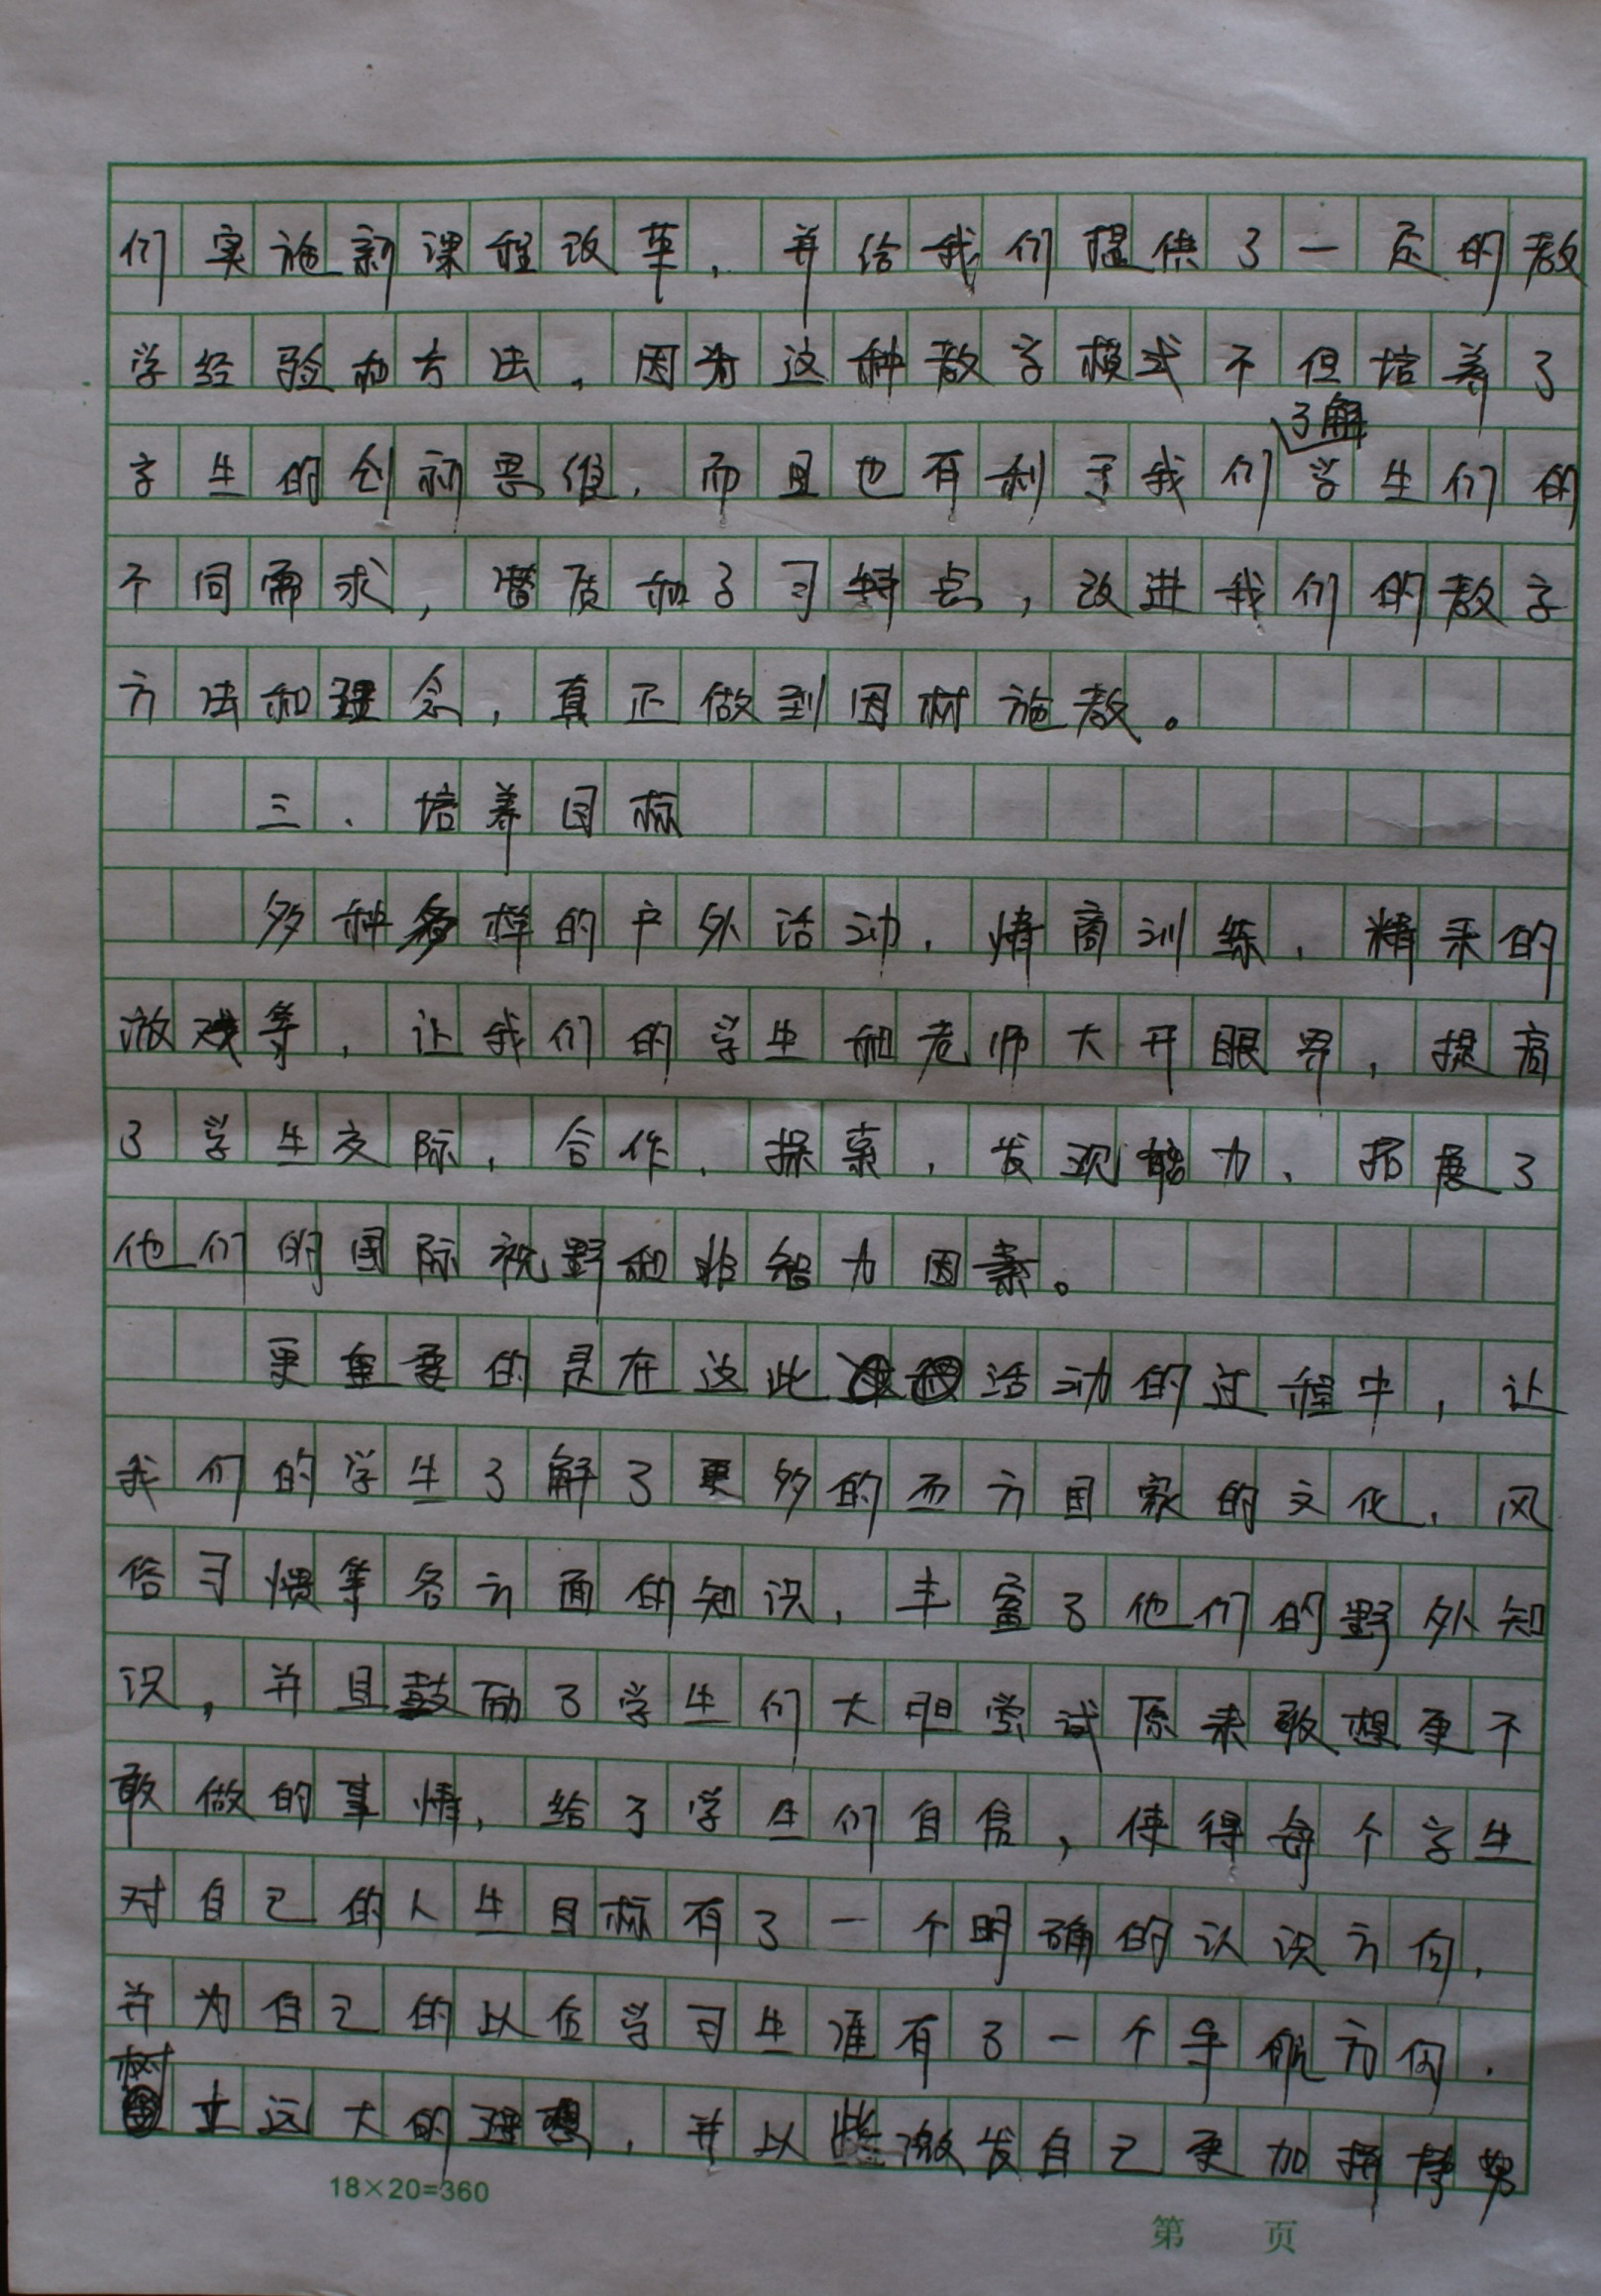 们实施新课程改革，并给我们提供了一定的教
学经验和方法，因为这种教学模式不但培养了
了解
学生的创新思维，而且也有利于我们学生们的
不同需求，潜质和学习特点，改进我们的教学
方法和理念，真正做到因材施教。
三、培养目标
多种多样的户外活动，情商训练，精采的
游戏等，让我们的学生和老师大开眼界，提高
了学生交际，合作，探索，发现能力，拓展了
他们的国际视野和非智力因素。
更重要的是在这些活动的过程中，让
我们的学生了解了更多的西方国家的文化，风
俗习惯等各方面的知识，丰富了他们的野外知
识，并且鼓励了学生们大胆尝试原来敢想更不
敢做的事情，给了学生们自信，使得每个学生
对自己的人生目标有了一个明确的认识方向，
并为自己的以后学习生涯有了一个导航方向，
树立远大的理想，并以此激发自己更加拼搏努
18×20=360
第 页